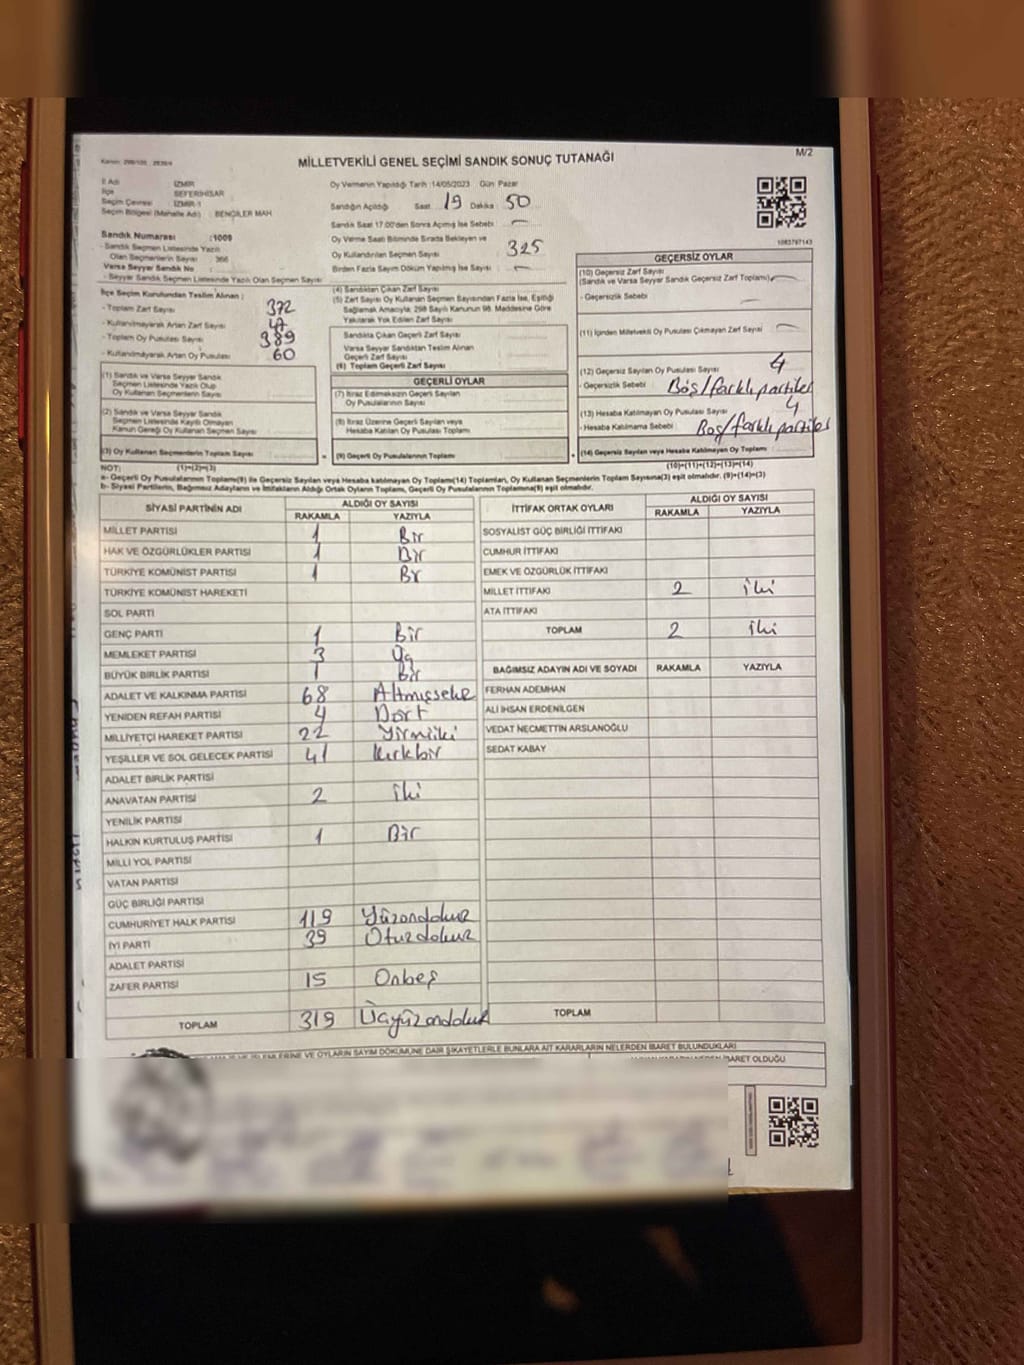 M/2
MİLLETVEKİLİ GENEL SEÇİMİ SANDIK SONUÇ TUTANAĞI
İl Adı : İZMİR
İlçe : SEFERİHİSAR
Seçim Çevresi : İZMİR-1
Seçim Bölgesi (Mahalle Adı) : BENGİLER MAH
Sandık Numarası :1009
- Sandık Seçmen Listesinde Yazılı
Olan Seçmenlerin Sayısı : 366
Varsa Seyyar Sandık No :
- Seyyar Sandık Seçmen Listesinde Yazılı Olan Seçmen Sayısı
Oy Vermenin Yapıldığı Tarih :14/05/2023 Gün Pazar
Sandığın Açıldığı Saat 19 Dakika 50
Sandık Saat 17.00'den Sonra Açılmış İse Sebebi —
Oy Verme Saati Bitiminde Sırada Bekleyen ve
Oy Kullandırılan Seçmen Sayısı 325
Birden Fazla Sayım Döküm Yapılmış İse Sayısı —
1083797143
İlçe Seçim Kurulundan Teslim Alınan :
- Toplam Zarf Sayısı 372
- Kullanılmayarak Artan Zarf Sayısı 47
- Toplam Oy Pusulası Sayısı 389
- Kullanılmayarak Artan Oy Pusulası 60
(1) Sandık ve Varsa Seyyar Sandık
Seçmen Listesinde Yazılı Olup
Oy Kullanan Seçmenlerin Sayısı
(2) Sandık ve Varsa Seyyar Sandık
Seçmen Listesinde Kayıtlı Olmayan
Kanun Gereği Oy Kullanan Seçmen Sayısı
(3) Oy Kullanan Seçmenlerin Toplam Sayısı
(4) Sandıktan Çıkan Zarf Sayısı
(5) Zarf Sayısı Oy Kullanan Seçmen Sayısından Fazla İse, Eşitliği
Sağlamak Amacıyla, 298 Sayılı Kanunun 98. Maddesine Göre
Yakılarak Yok Edilen Zarf Sayısı
Sandıkta Çıkan Geçerli Zarf Sayısı
Varsa Seyyar Sandıktan Teslim Alınan
Geçerli Zarf Sayısı
(6) Toplam Geçerli Zarf Sayısı
GEÇERLİ OYLAR
(7) İtiraz Edilmeksizin Geçerli Sayılan
Oy Pusulalarının Sayısı
(8) İtiraz Üzerine Geçerli Sayılan veya
Hesaba Katılan Oy Pusulası Toplamı
= (9) Geçerli Oy Pusulalarının Toplamı
GEÇERSİZ OYLAR
(10) Geçersiz Zarf Sayısı
(Sandık ve Varsa Seyyar Sandık Geçersiz Zarf Toplamı) —
- Geçersizlik Sebebi —
(11) İçinden Milletvekili Oy Pusulası Çıkmayan Zarf Sayısı —
(12) Geçersiz Sayılan Oy Pusulası Sayısı 4
- Geçersizlik Sebebi Boş/farklı partiler
(13) Hesaba Katılmayan Oy Pusulası Sayısı 4
- Hesaba Katılmama Sebebi Boş/farklı partiler
+ (14) Geçersiz Sayılan veya Hesaba Katılmayan Oy Toplamı
NOT: (1)+(2)=(3) (10)+(11)+(12)+(13)=(14)
a- Geçerli Oy Pusulasının Toplamı(9) ile Geçersiz Sayılan veya Hesaba katılmayan Oy Toplamı(14) Toplamları, Oy Kullanan Seçmenlerin Toplam Sayısına(3) eşit olmalıdır. (9)+(14)=(3)
b- Siyasi Partilerin, Bağımsız Adayların ve İttifakların Aldığı Ortak Oyların Toplamı, Geçerli Oy Pusulalarının Toplamına(9) eşit olmalıdır.
SİYASİ PARTİNİN ADI ALDIĞI OY SAYISI
RAKAMLA YAZIYLA
MİLLET PARTİSİ 1 Bir
HAK VE ÖZGÜRLÜKLER PARTİSİ 1 Bir
TÜRKİYE KOMÜNİST PARTİSİ 1 Br
TÜRKİYE KOMÜNİST HAREKETİ
SOL PARTİ
GENÇ PARTİ 1 Bir
MEMLEKET PARTİSİ 3 Üç
BÜYÜK BİRLİK PARTİSİ 1 Bir
ADALET VE KALKINMA PARTİSİ 68 Altmışsekiz
YENİDEN REFAH PARTİSİ 4 Dört
MİLLİYETÇİ HAREKET PARTİSİ 22 Yirmiiki
YEŞİLLER VE SOL GELECEK PARTİSİ 41 Kırkbir
ADALET BİRLİK PARTİSİ
ANAVATAN PARTİSİ 2 iki
YENİLİK PARTİSİ
HALKIN KURTULUŞ PARTİSİ 1 Bir
MİLLİ YOL PARTİSİ
VATAN PARTİSİ
GÜÇ BİRLİĞİ PARTİSİ
CUMHURİYET HALK PARTİSİ 119 Yüzondokuz
İYİ PARTİ 39 Otuzdokuz
ADALET PARTİSİ
ZAFER PARTİSİ 15 Onbeş
TOPLAM 319 Üçyüzondokuz
İTTİFAK ORTAK OYLARI ALDIĞI OY SAYISI
RAKAMLA YAZIYLA
SOSYALİST GÜÇ BİRLİĞİ İTTİFAKI
CUMHUR İTTİFAKI
EMEK VE ÖZGÜRLÜK İTTİFAKI
MİLLET İTTİFAKI 2 iki
ATA İTTİFAKI
TOPLAM 2 iki
BAĞIMSIZ ADAYIN ADI VE SOYADI RAKAMLA YAZIYLA
FERHAN ADEMHAN
ALİ İHSAN ERDENİLGEN
VEDAT NECMETTİN ARSLANOĞLU
SEDAT KABAY
TOPLAM
İŞLEMLERİNE VE OYLARIN SAYIM DÖKÜMÜNE DAİR ŞİKAYETLERLE BUNLARA AİT KARARLARIN NELERDEN İBARET BULUNDUKLARI
İBARET OLDUĞU